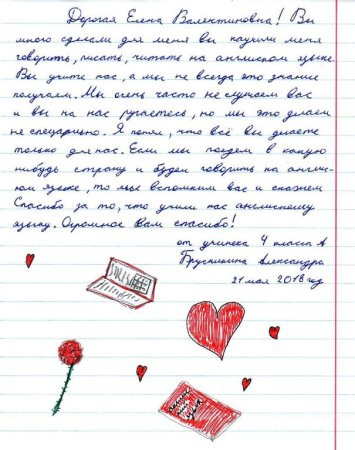 Дорогая Елена Валентиновна! Вы
много сделали для меня вы научили меня
говорить, писать, читать на англиском языке.
Вы учите нас, а мы не всегда это знание
получаем. Мы очень часто не слушаем вас
и вы на нас ругаетесь, но мы это делаем
не спецально. Я понял, что всё вы делаете
только для нас. Если мы поедем в какую
нибудь страну и будем говорить на англис-
ком языке, то мы вспомним вас и скажем
Спасибо за то, что учили нас английскому
языку. Огромное Вам спасибо!
от ученика 4 класса А
Александра
21 мая 2018 год